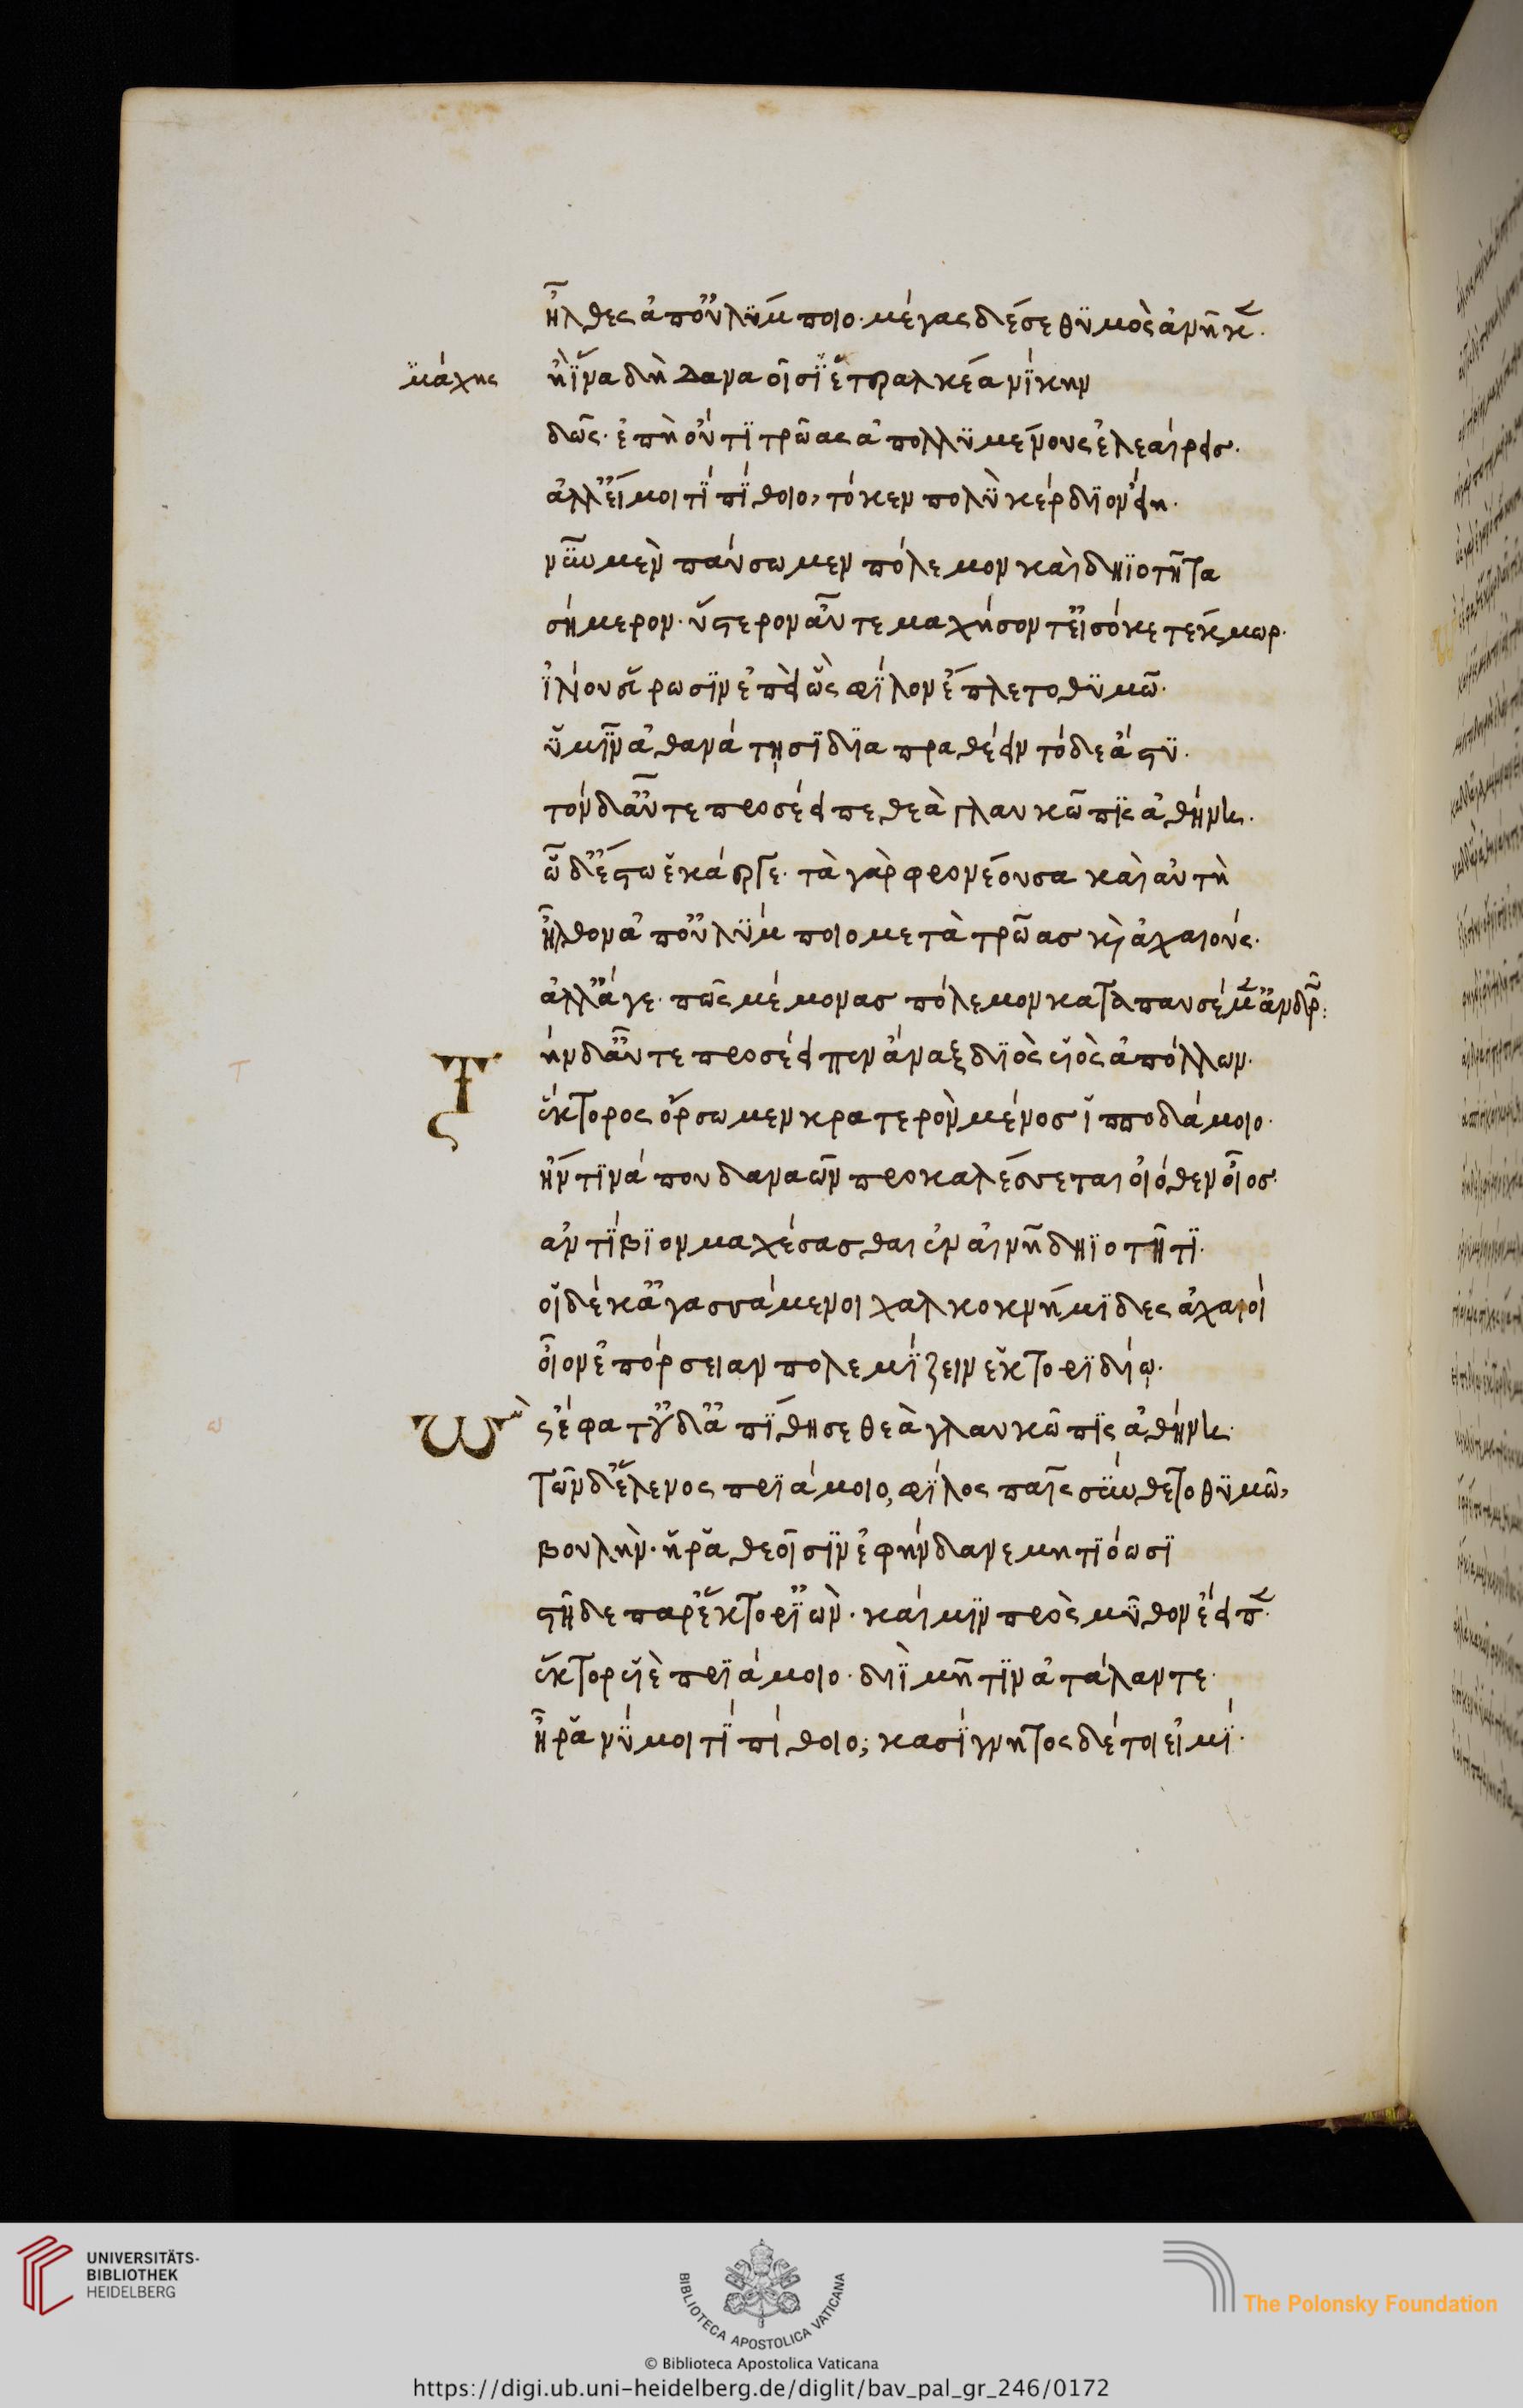 ἦλθες ἀπ' οὐλύμποιο· μέγας δέ σε θυμὸς ἀνῆκε·
μάχης
ἢ ἵνα δὴ Δαναοῖσι ἑτεραλκέα νίκην
δῶς· ἐπὴ οὔτι τρῶας ἀπολλυμένους ἐλεαίρεις·
ἀλλ' εἴ μοι τί πίθοιο, τό κεν πολὺ κέρδιον εἴη·
νῦν μὲν παύσωμεν πόλεμον καὶ δηϊοτῆτα
σήμερον· ὕστερον αὖτε μαχήσοντ' εἰσόκε τέκμωρ·
ἰλίου εὕρωσιν ἐπεὶ ὣς φίλον ἔπλετο θυμῶ·
ὑμῖν ἀθανάτῃσι διαπραθέειν τόδε ἄστυ·
τὸν δ' αὖτε προσέειπε θεὰ γλαυκῶπις ἀθήνη·
ὧδ' ἔστω ἑκάεργε· τὰ γὰρ φρονέουσα καὶ αὐτὴ
ἦλθον ἀπ' οὐλύμποιο μετὰ τρῶας καὶ ἀχαιούς·
ἀλλ' ἄγε· πῶς μέμονας πόλεμον καταπαυσέμεν ἀνδρῶν:
Τ
ὴν δ' αὖτε προσέειπεν ἄναξ διὸς υἱὸς ἀπόλλων·
ἕκτορος ὄρσωμεν κρατερὸν μένος ἱπποδάμοιο·
ἤν τινά που δαναῶν προκαλέσσεται οἰόθεν οἶος·
ἀντίβιον μαχέσασθαι ἐν αἰνῆ δηϊοτῆτι·
οἱ δέ κ' ἀγασσάμενοι χαλκοκνήμιδες ἀχαιοί
οἶον ἐπόρσειαν πολεμίζειν ἕκτορι δίῳ·
Ω
ς ἔφατ' οὐδ' ἀπίθησε θεὰ γλαυκῶπις ἀθήνη·
τῶν δ' ἕλενος πριάμοιο, φίλος παῖς σύνθετο θυμῶ,
βουλήν· ἥ ῥα θεοῖσιν ἐφήνδανε μητιόωσι
στῆ δὲ παρ' ἕκτορ' ἰών· καί μιν πρὸς μῦθον ἔειπε·
ἕκτορ υἱὲ πριάμοιο· διῒ μῆτιν ἀτάλαντε·
ἦ ῥά νύ μοι τί πίθοιο; κασίγνητος δέ τοι εἰμί·
UNIVERSITÄTS-
BIBLIOTHEK
HEIDELBERG
BIBLIOTECA APOSTOLICA VATICANA
The Polonsky Foundation
© Biblioteca Apostolica Vaticana
https://digi.ub.uni-heidelberg.de/diglit/bav_pal_gr_246/0172